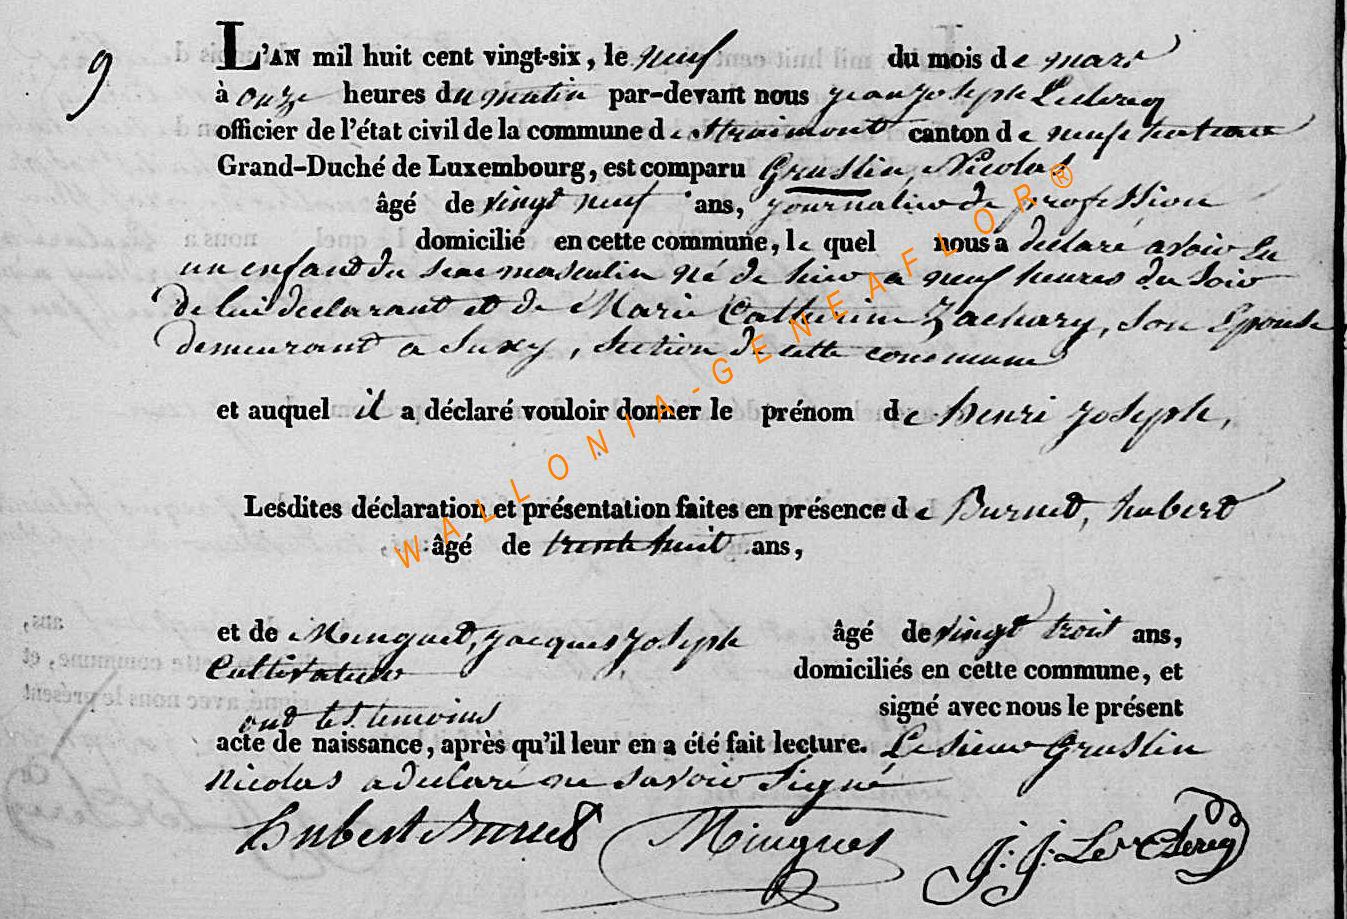 9
L'AN mil huit cent vingt-six, le neuf du mois de mars
à onze heures du matin par-devant nous jean joseph Leclercq
officier de l'état civil de la commune de Straimont canton de neufchateau
Grand-Duché de Luxembourg, est comparu Gruslin Nicolas
âgé de vingt neuf ans, journalier de profession
, domicilié en cette commune, le quel nous a declaré avoir eu
un enfand du sexe masculin né de hier a neuf heures du soir
de lui declarant et de Marie Catherine Zachary, son Epouse
demeurant a Suxy, section de cette commune
et auquel il a déclaré vouloir donner le prénom de henri joseph,
Lesdites déclaration et présentation faites en présence de Burnet, hubert
âgé de trente huit ans,
et de Minguet, jacques joseph âgé de vingt trois ans,
Cultivateur domiciliés en cette commune, et
ont les temoins signé avec nous le présent
acte de naissance, après qu'il leur en a été fait lecture. Le sieur Gruslin
Nicolas a declaré ne savoir signé
hubert Burnet Minguet J. J. Le Clercq
WALLONIA-GENEAFLOR®